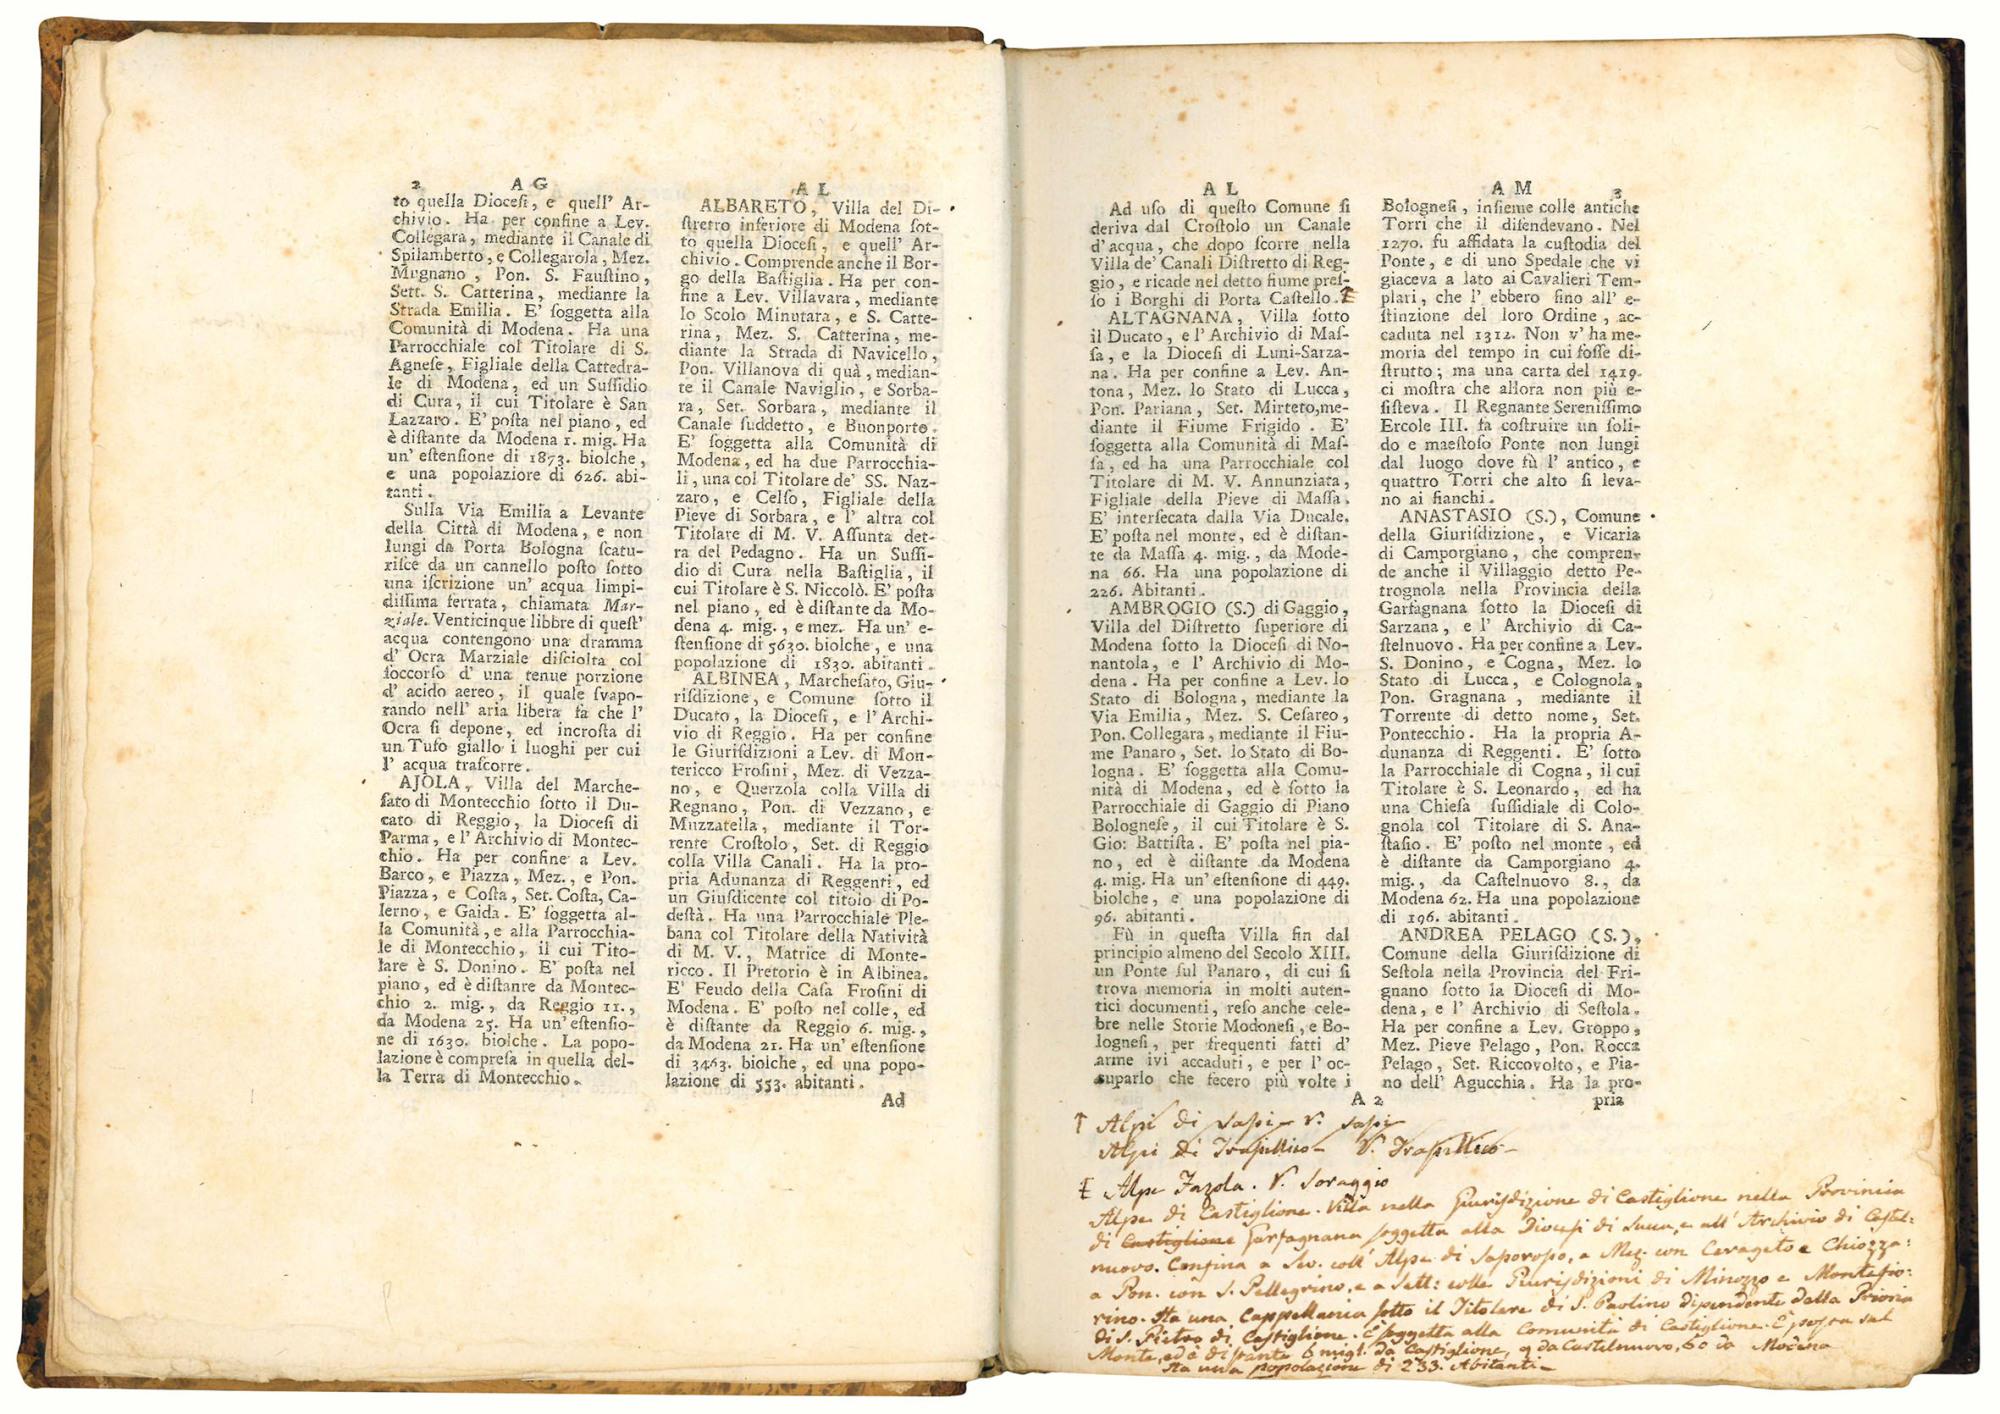 2 AG
to quella Dioceſi, e quell' Ar-
chivio. Ha per confine a Lev.
Collegara, mediante il Canale di
Spilamberto, e Collegarola, Mez.
Mugnano, Pon. S. Fauſtino,
Sett. S. Catterina, mediante la
Strada Emilia. E' ſoggetta alla
Comunità di Modena. Ha una
Parrocchiale col Titolare di S.
Agneſe, Figliale della Cattedra-
le di Modena, ed un Suſſidio
di Cura, il cui Titolare è San
Lazzaro. E' poſta nel piano, ed
è diſtante da Modena 1. mig. Ha
un' eſtenſione di 1873. biolche,
e una popolaziore di 626. abi-
tanti.
Sulla Via Emilia a Levante
della Città di Modena, e non
lungi da Porta Bologna ſcatu-
riſce da un cannello poſto ſotto
una iſcrizione un' acqua limpi-
diſſima ferrata, chiamata Mar-
ziale. Venticinque libbre di queſt'
acqua contengono una dramma
d' Ocra Marziale diſciolta col
ſoccorſo d' una tenue porzione
d' acido aereo, il quale ſvapo-
rando nell' aria libera fa che l'
Ocra ſi depone, ed incroſta di
un Tufo giallo i luoghi per cui
l' acqua traſcorre.
AJOLA, Villa del Marche-
ſato di Montecchio ſotto il Du-
cato di Reggio, la Dioceſi di
Parma, e l' Archivio di Montec-
chio. Ha per confine a Lev.
Barco, e Piazza, Mez., e Pon.
Piazza, e Coſta, Set. Coſta, Ca-
lerno, e Gaida. E' ſoggetta al-
la Comunità, e alla Parrocchia-
le di Montecchio, il cui Tito-
lare è S. Donino. E' poſta nel
piano, ed è diſtante da Montec-
chio 2. mig., da Reggio 11.,
da Modena 25. Ha un' eſtenſio-
ne di 1630. biolche. La popo-
lazione è compreſa in quella del-
la Terra di Montecchio.
AL
ALBARETO, Villa del Di-
ſtretto inferiore di Modena ſot-
to quella Dioceſi, e quell' Ar-
chivio. Comprende anche il Bor-
go della Baſtiglia. Ha per con-
fine a Lev. Villavara, mediante
lo Scolo Minutara, e S. Catte-
rina, Mez. S. Catterina, me-
diante la Strada di Navicello,
Pon. Villanova di quà, median-
te il Canale Naviglio, e Sorba-
ra, Set. Sorbara, mediante il
Canale ſuddetto, e Buonporto.
E' ſoggetta alla Comunità di
Modena, ed ha due Parrocchia-
li, una col Titolare de' SS. Naz-
zaro, e Celſo, Figliale della
Pieve di Sorbara, e l' altra col
Titolare di M. V. Aſſunta det-
ta del Pedagno. Ha un Suſſi-
dio di Cura nella Baſtiglia, il
cui Titolare è S. Niccolò. E' poſta
nel piano, ed è diſtante da Mo-
dena 4. mig., e mez. Ha un' e-
ſtenſione di 5630. biolche, e una
popolazione di 1830. abitanti.
ALBINEA, Marcheſato, Giu-
riſdizione, e Comune ſotto il
Ducato, la Dioceſi, e l' Archi-
vio di Reggio. Ha per confine
le Giuriſdizioni a Lev. di Mon-
tericco Froſini, Mez. di Vezza-
no, e Querzola colla Villa di
Regnano, Pon. di Vezzano, e
Muzzatella, mediante il Tor-
rente Croſtolo, Set. di Reggio
colla Villa Canali. Ha la pro-
pria Adunanza di Reggenti, ed
un Giuſdicente col titolo di Po-
deſtà. Ha una Parrocchiale Ple-
bana col Titolare della Natività
di M. V., Matrice di Monte-
ricco. Il Pretorio è in Albinea.
E' Feudo della Caſa Froſini di
Modena. E' poſto nel colle, ed
è diſtante da Reggio 6. mig.,
da Modena 21. Ha un' eſtenſione
di 3463. biolche, ed una popo-
lazione di 553. abitanti.
Ad
AL
Ad uſo di queſto Comune ſi
deriva dal Croſtolo un Canale
d' acqua, che dopo ſcorre nella
Villa de' Canali Diſtretto di Reg-
gio, e ricade nel detto fiume preſ-
ſo i Borghi di Porta Caſtello.
ALTAGNANA, Villa ſotto
il Ducato, e l' Archivio di Maſ-
ſa, e la Dioceſi di Luni-Sarza-
na. Ha per confine a Lev. An-
tona, Mez. lo Stato di Lucca,
Pon. Pariana, Set. Mirteto, me-
diante il Fiume Frigido. E'
ſoggetta alla Comunità di Maſ-
ſa, ed ha una Parrocchiale col
Titolare di M. V. Annunziata,
Figliale della Pieve di Maſſa.
E' interſecata dalla Via Ducale.
E' poſta nel monte, ed è diſtan-
te da Maſſa 4. mig., da Mode-
na 66. Ha una popolazione di
226. Abitanti.
AMBROGIO (S.) di Gaggio,
Villa del Diſtretto ſuperiore di
Modena ſotto la Dioceſi di No-
nantola, e l' Archivio di Mo-
dena. Ha per confine a Lev. lo
Stato di Bologna, mediante la
Via Emilia, Mez. S. Ceſareo,
Pon. Collegara, mediante il Fiu-
me Panaro, Set. lo Stato di Bo-
logna. E' ſoggetta alla Comu-
nità di Modena, ed è ſotto la
Parrocchiale di Gaggio di Piano
Bologneſe, il cui Titolare è S.
Gio: Battiſta. E' poſta nel pia-
no, ed è diſtante da Modena
4. mig. Ha un' eſtenſione di 449.
biolche, e una popolazione di
96. abitanti.
Fù in queſta Villa fin dal
principio almeno del Secolo XIII.
un Ponte ſul Panaro, di cui ſi
trova memoria in molti auten-
tici documenti, reſo anche cele-
bre nelle Storie Modoneſi, e Bo-
logneſi, per frequenti fatti d'
arme ivi accaduti, e per l' oc-
cuparlo che fecero più volte i
A 2
AM 3
Bologneſi, inſieme colle antiche
Torri che il difendevano. Nel
1270. fu affidata la cuſtodia del
Ponte, e di uno Spedale che vi
giaceva a lato ai Cavalieri Tem-
plari, che l' ebbero fino all' e-
ſtinzione del loro Ordine, ac-
caduta nel 1312. Non v' ha me-
moria del tempo in cui foſſe di-
ſtrutto; ma una carta del 1419.
ci moſtra che allora non più e-
ſiſteva. Il Regnante Sereniſſimo
Ercole III. fa coſtruire un ſoli-
do e maeſtoſo Ponte non lungi
dal luogo dove fù l' antico, e
quattro Torri che alto ſi leva-
no ai fianchi.
ANASTASIO (S.), Comune
della Giuriſdizione, e Vicaria
di Camporgiano, che compren-
de anche il Villaggio detto Pe-
trognola nella Provincia della
Garfagnana ſotto la Dioceſi di
Sarzana, e l' Archivio di Ca-
ſtelnuovo. Ha per confine a Lev.
S. Donino, e Cogna, Mez. lo
Stato di Lucca, e Colognola,
Pon. Gragnana, mediante il
Torrente di detto nome, Set.
Pontecchio. Ha la propria A-
dunanza di Reggenti. E' ſotto
la Parrocchiale di Cogna, il cui
Titolare è S. Leonardo, ed ha
una Chieſa ſuſſidiale di Colo-
gnola col Titolare di S. Ana-
ſtaſio. E' poſto nel monte, ed
è diſtante da Camporgiano 4.
mig., da Caſtelnuovo 8., da
Modena 62. Ha una popolazione
di 196. abitanti.
ANDREA PELAGO (S.),
Comune della Giuriſdizione di
Seſtola nella Provincia del Fri-
gnano ſotto la Dioceſi di Mo-
dena, e l' Archivio di Seſtola.
Ha per confine a Lev. Groppo,
Mez. Pieve Pelago, Pon. Rocca
Pelago, Set. Riccovolto, e Pia-
no dell' Agucchia. Ha la pro-
pria
Alpi di Saſsi V. Saſsi
Alpi di Traſillico V. Traſillico
Alpe Fazola. V. Soraggio
Alpe di Castiglione. Villa nella Giurisdizione di Castiglione nella Provincia
di Castiglione Garfagnana soggetta alla Diocesi di Lucca, e all' Archivio di Castel:
nuovo. Confina a Lev. coll' Alpe di Soporoſo, a Mez. con Cerageto e Chiozza:
a Pon. con S. Pellegrino, e a Sett: colle Giurisdizioni di Minozzo e Montefio:
rino. Ha una Cappellania sotto il Titolare di S. Paolino dipendente dalla Prioria
di S. Pietro di Castiglione. È soggetta alla Comunità di Castiglione. È posta sul
Monte, ed è distante 6 migl. da Castiglione, 9 da Castelnuovo, 60 da Modena
Ha una popolazione di 233. Abitanti